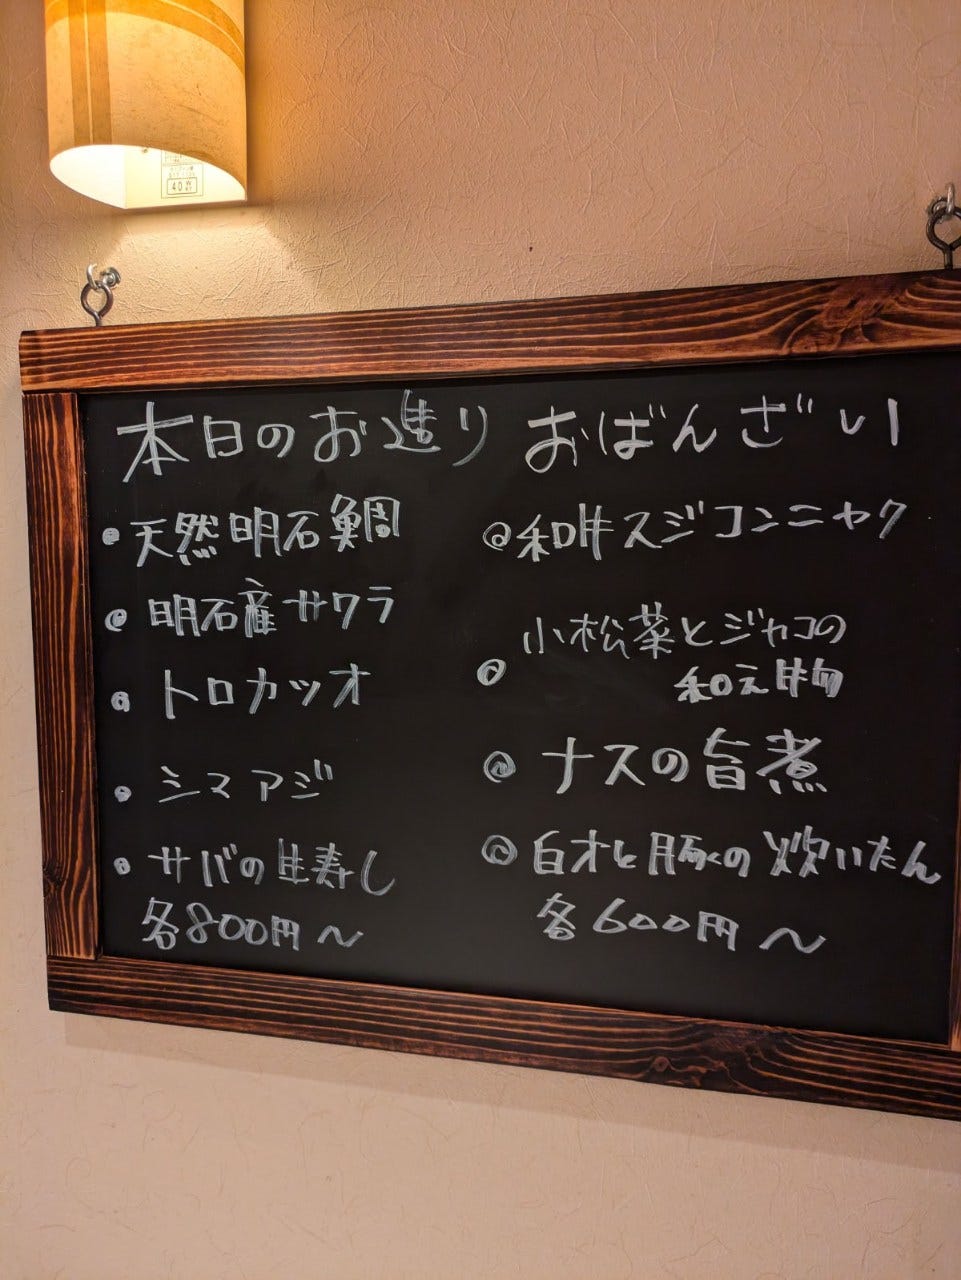 40W
本日のお造り
・天然明石鯛
・明石産サワラ
・トロカツオ
・シマアジ
・サバの生寿し
各800円〜
おばんざい
・和牛スジコンニャク
・小松菜とジャコの
和え物
・ナスの旨煮
・白才と豚くの炊いたん
各600円〜